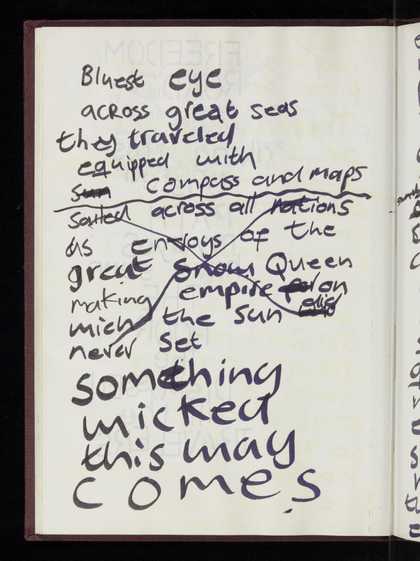 Bluest eye
across great seas
they traveled
equipped with
sun compass and maps
sailed across all nations
as envoys of the
great snow Queen
making empire on
mich the sun
never set
something
wicked
this way
comes